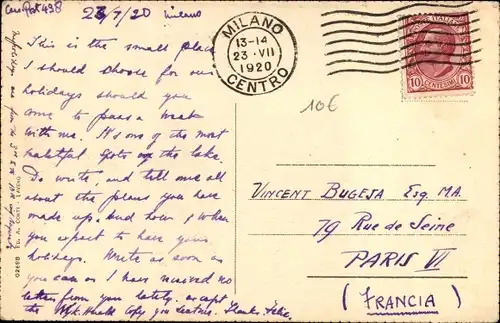 Cen Post 438
23/7/20 Milano
This is the small place
I should choose for our
holidays should you
come to pass a week
with me. It's one of the most
beautiful spots of the lake.
Do write and tell me all
about the plans you have
made up. And how & when
you expect to have your
holidays. Write as soon as
you can as I have received no
letters from you lately, except
the Herald copy you
02698 Ed. A.
MILANO
13-14
23·VII
1920
CENTRO
POSTE ITALIANE
10 CENTESIMI 10
10€
VINCENT BUGEJA ESQ. MA.
79 Rue de Seine
PARIS VI
(FRANCIA)